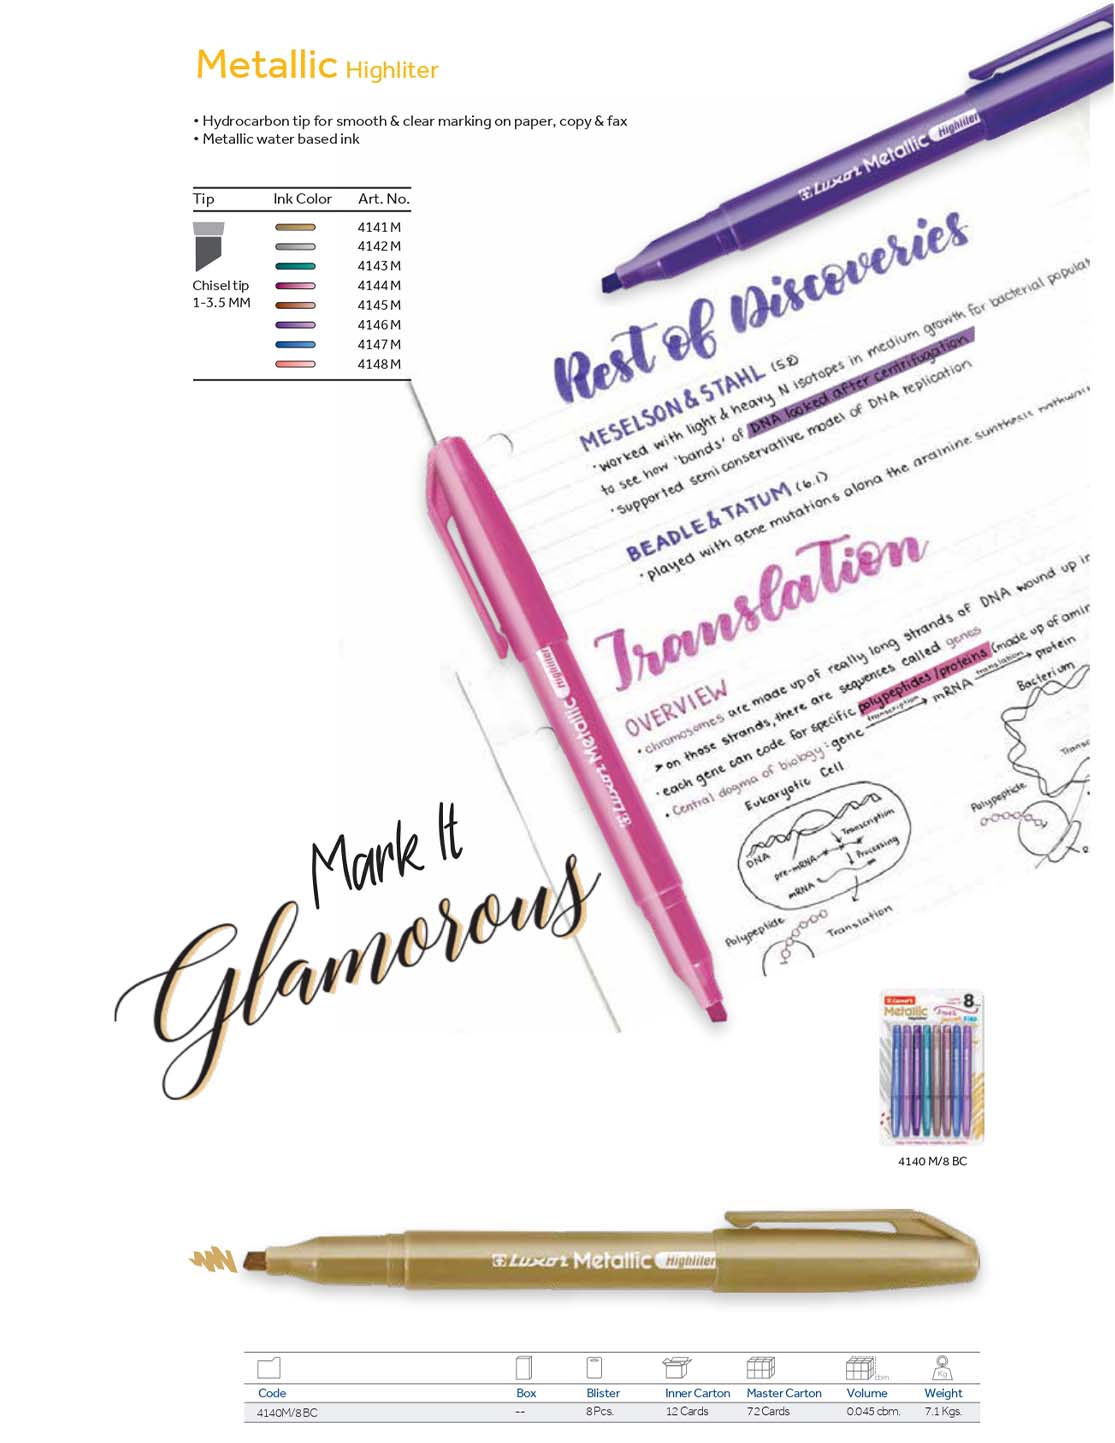 Metallic Highliter
• Hydrocarbon tip for smooth & clear marking on paper, copy & fax
• Metallic water based ink
Tip Ink Color Art. No.
4141 M
4142 M
4143 M
4144 M
4145 M
4146 M
4147 M
4148 M
Chisel tip
1-3.5 MM
Luxor Metallic Highliter
Rest of Discoveries
MESELSON & STAHL (5.8)
• worked with light & heavy N isotopes in medium growth for bacterial
to see how 'bands' of DNA looked after centrifugation
• supported semiconservative model of DNA replication
BEADLE & TATUM (6.1)
• played with gene mutations along the arginine synthesis pathway
Translation
OVERVIEW
• chromosomes are made up of really long strands of DNA wound up in
> on those strands, there are sequences called genes
• each gene can code for specific polypeptides/proteins (made up of
• Central dogma of biology: gene transcription mRNA translation protein
Eukaryotic Cell
DNA
Transcription
pre-mRNA
Processing
mRNA
Polypeptide
Translation
Bacterium
Polypeptide
Luxor Metallic Highliter
Mark It
Glamorous
Luxor
Metallic
8
4140 M/8 BC
Luxor Metallic Highliter
cbm
Kg
Code Box Blister Inner Carton Master Carton Volume Weight
4140M/8 BC -- 8 Pcs. 12 Cards 72 Cards 0.045 cbm. 7.1 Kgs.